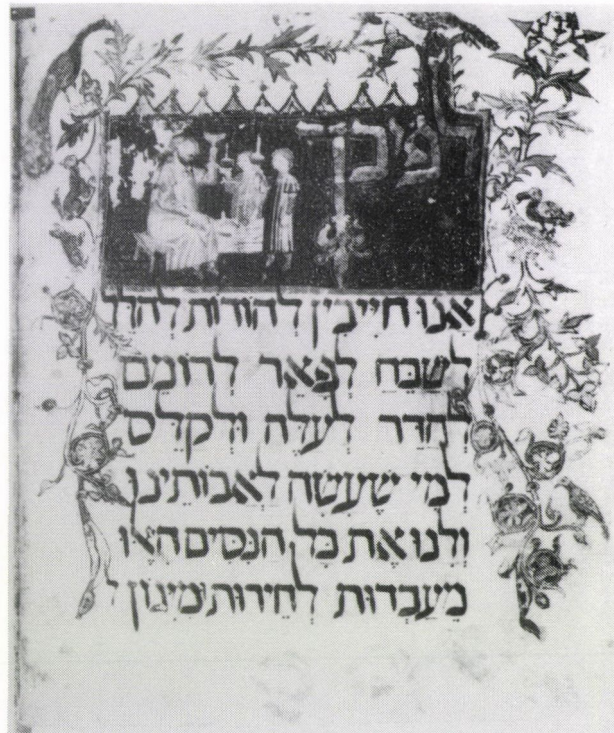 לפיכך
אָנוּ חַיָּיבִין לְהוֹדוֹת לְהַלֵּל
לְשַׁבֵּחַ לְפָאֵר לְרוֹמֵם
לְהַדֵּר לְעַלֵּה וּלְקַלֵּס
לְמִי שֶׁעָשָׂה לַאֲבוֹתֵינוּ
וְלָנוּ אֶת כָּל הַנִּסִּים הָאֵ֗לּוּ
מֵעַבְדוּת לְחֵירוּת וּמִיגוֹן ל